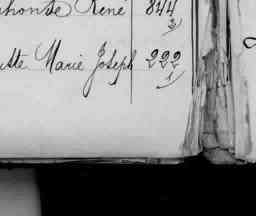 phonse René 844
3)
tte Marie Joseph 222
1)